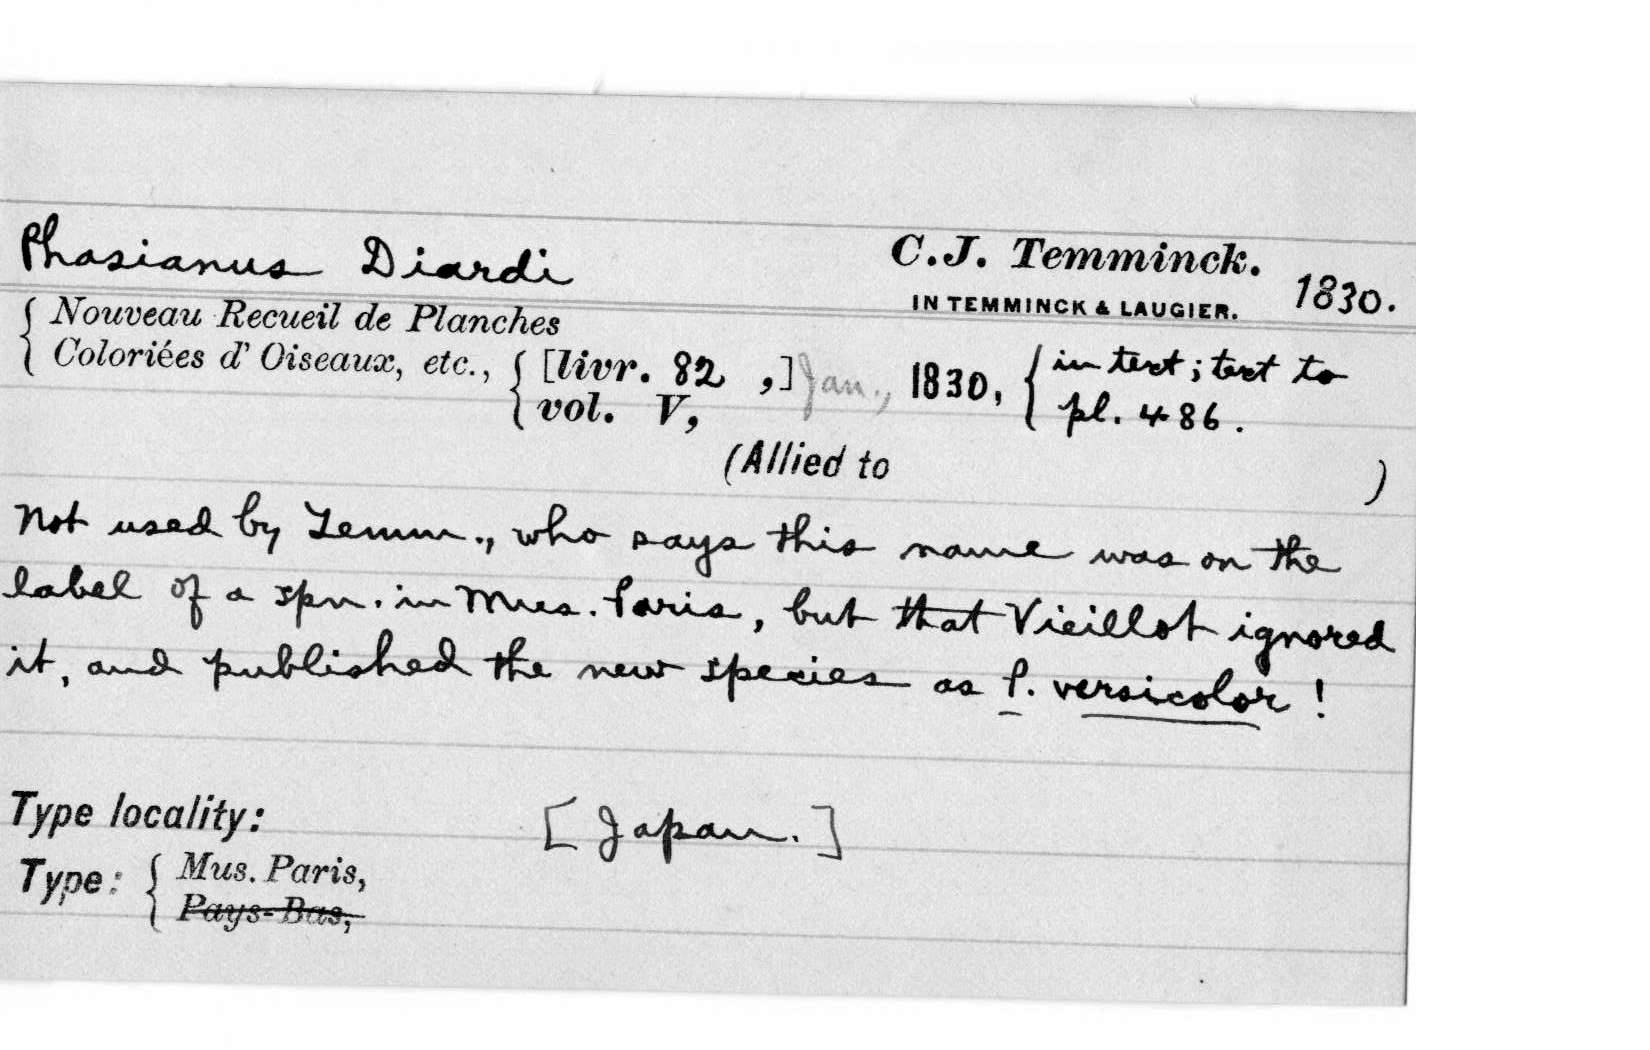 Phasianus Diardi C.J. Temminck.
IN TEMMINCK & LAUGIER. 1830.
Nouveau Recueil de Planches
Coloriées d'Oiseaux, etc., [livr. 82 ,] Jan., 1830, in text; text to
vol. V, pl. 486.
(Allied to )
Not used by Temm., who says this name was on the
label of a spn. in Mus. Paris, but that Vieillot ignored
it, and published the new species as P. versicolor!
Type locality: [Japan.]
Type: Mus. Paris,
Pays-Bas,